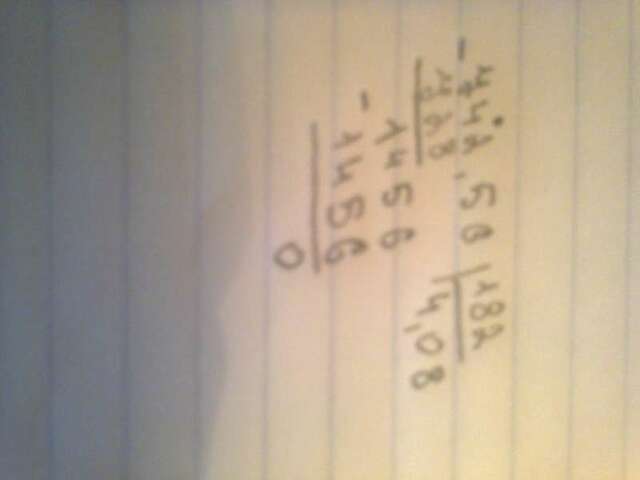 742,56 |182
- 728 4,08
1456
- 1456
0